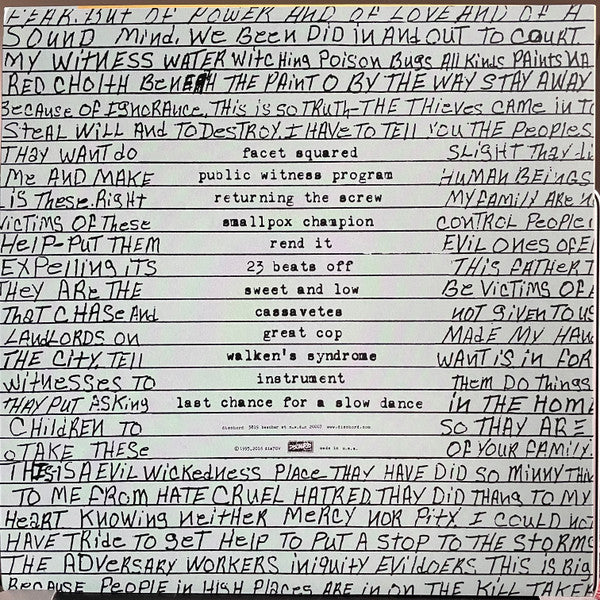 FEAR. BUT OF POWER AND OF LOVE AND OF A
SOUND MIND. WE BEEN DID IN AND OUT TO COURT
MY WITNESS WATER WITCHING POISON BUGS ALL KINDS PAINTS
RED CHOITH BENEATH THE PAINT O BY THE WAY STAY AWAY
BECAUSE OF IGNORANCE. THIS IS SO TRUTH-THE THIEVES CAME IN TO
STEAL WILL AND TO DESTROY. I HAVE TO TELL YOU THE PEOPLES
THAY WANT do facet squared SLIGHT THAY
ME AND MAKE public witness program HUMAN BEINGS
LIS THESE. RIGHT returning the screw MY FAMILY ARE
VICTIMS OF THESE smallpox champion CONTROL PEOPLE
HELP-PUT THEM rend it EVIL ONES OF
EXPELLING ITS 23 beats off THIS FATHER
THEY ARE THE sweet and low BE VICTIMS OF
THAT CHASE AND cassavetes NOT GIVEN TO US
LANDLORDS ON great cop MADE MY
THE CITY. TELL walken's syndrome WANT IS IN FOR
WITNESSES TO instrument THEM DO THINGS
THAY PUT ASKING last chance for a slow dance IN THE
CHILDREN TO dischord 3819 beecher st n.w. d.c. 20007 www.dischord.com SO THAY ARE
OTAKE THESE ©1993, 2016 dis70V DISCHORD made in u.s.a. OF YOUR FAMILY.
THIS IS A EVIL WICKEDNESS PLACE THAY HAVE DID SO MINNY
TO ME FROM HATE CRUEL HATRED THAY DID THANG TO MY
HEART KNOWING NEITHER MERCY NOR PITY I COULD NOT
HAVE TRIDE TO GET HELP TO PUT A STOP TO THE STORMS
THE ADVERSARY WORKERS INIQUITY EVILDOERS THIS IS BIG
BECAUSE PEOPLE IN HIGH PLACES ARE IN ON THE KILL TAKE